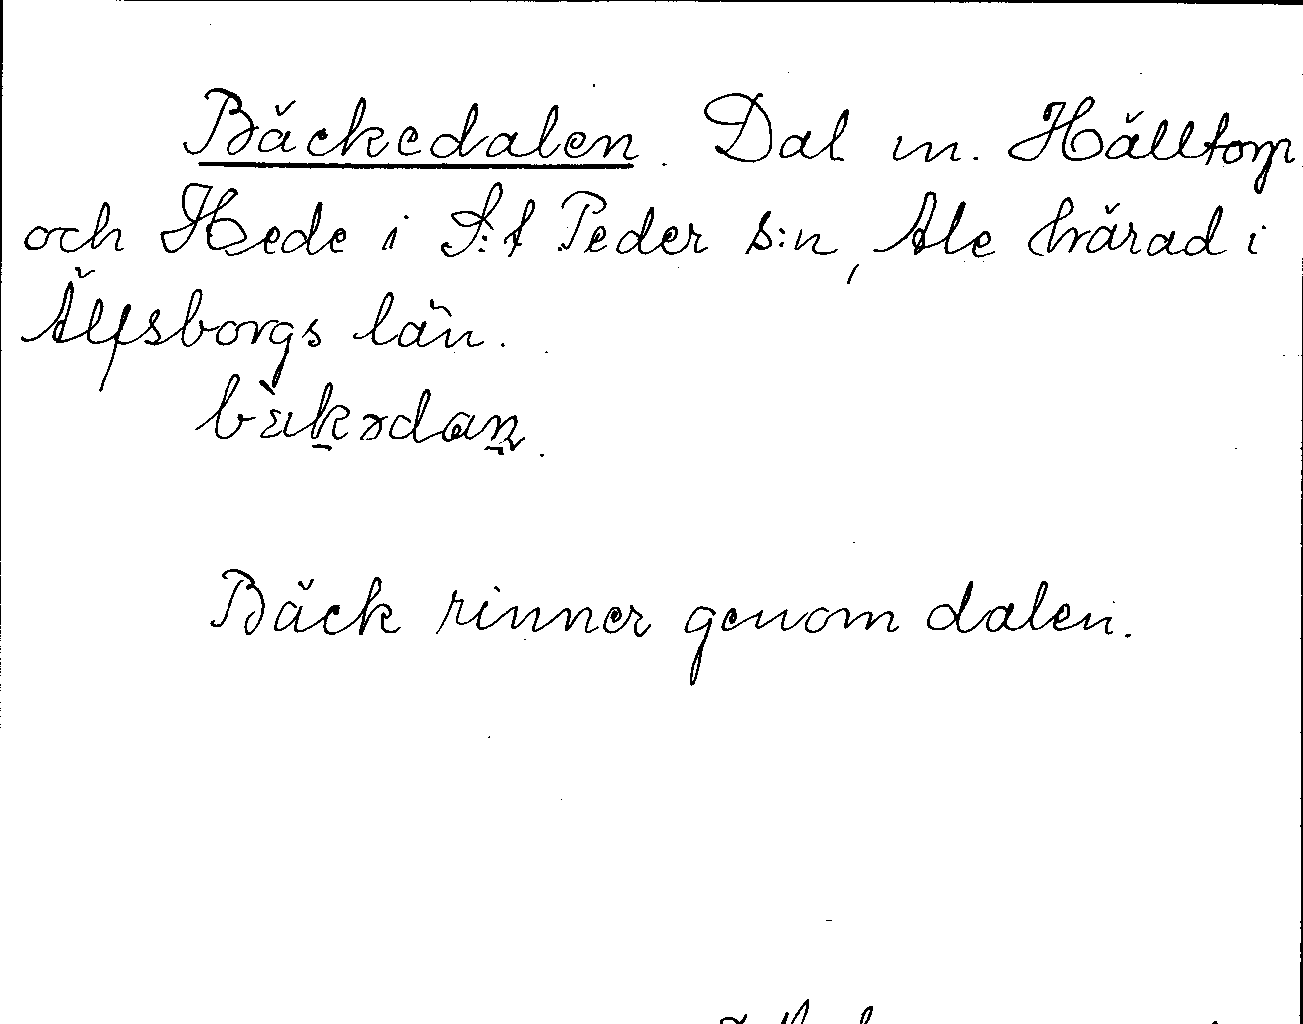 Bäckedalen. Dal m. Hälltorp
och Hede i S:t Peder s:n, Ale härad i
Älfsborgs län.
Bäck rinner genom dalen.